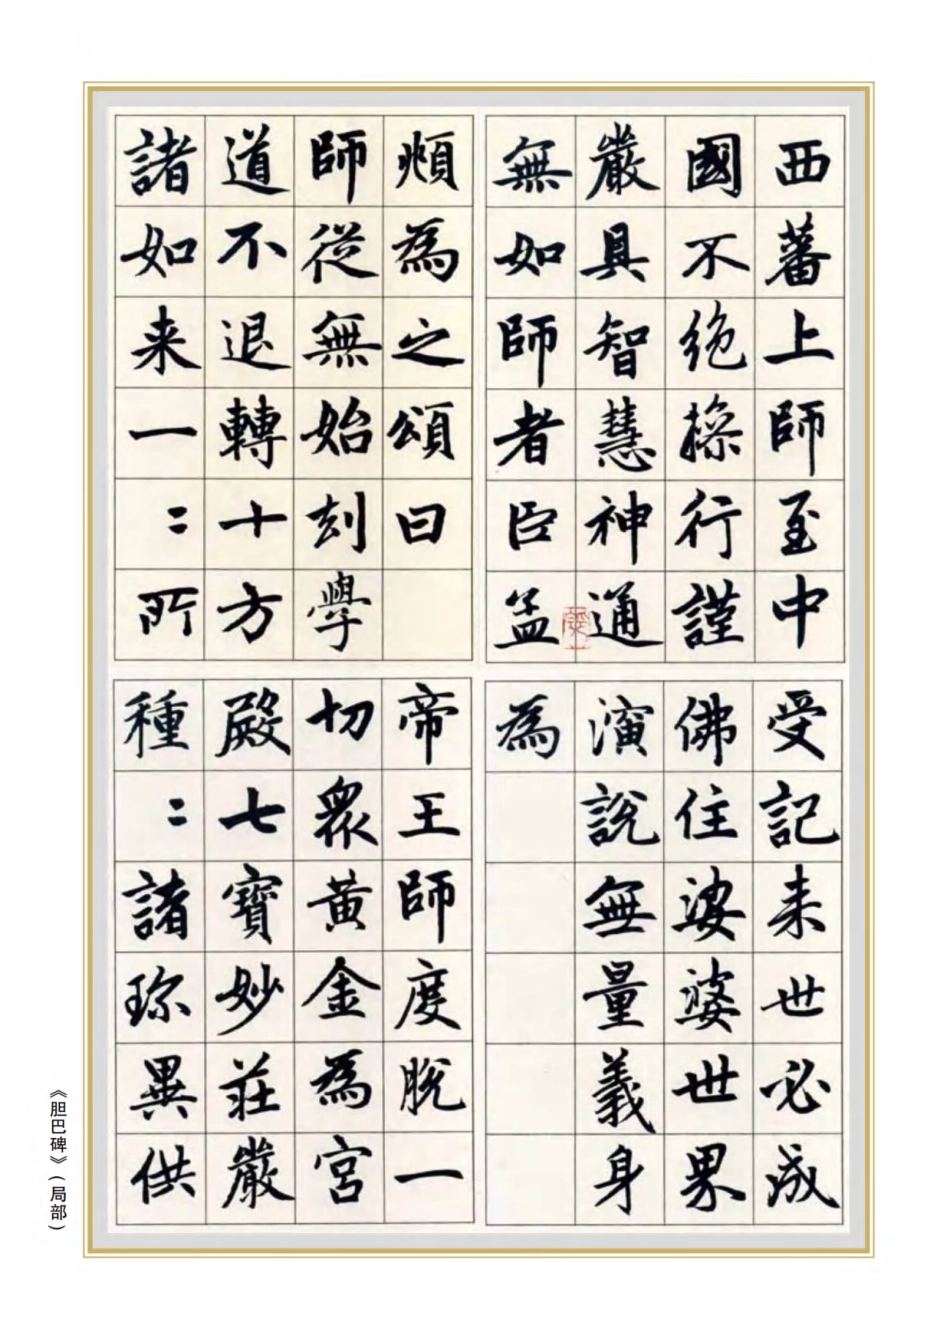 西蕃上師至中
國不絶操行謹
嚴具智慧神通
無如師者臣孟
頫為之頌曰
師從無始刧學
道不退轉十方
諸如来一〻所
受記来世必成
佛住娑婆世界
演說無量義身
為
帝王師度脫一
切眾黃金為宮
殿七寶妙莊嚴
種〻諸珎異供
《胆巴碑》(局部)